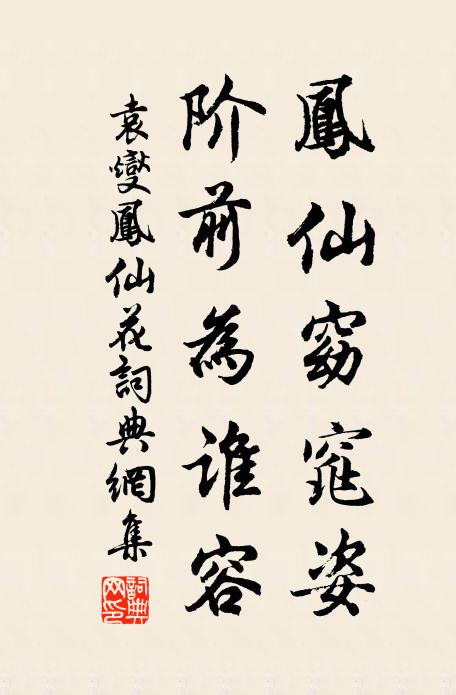 鳳仙窈窕姿
阶前為谁容
袁燮鳳仙花詞典網集
詞典網印